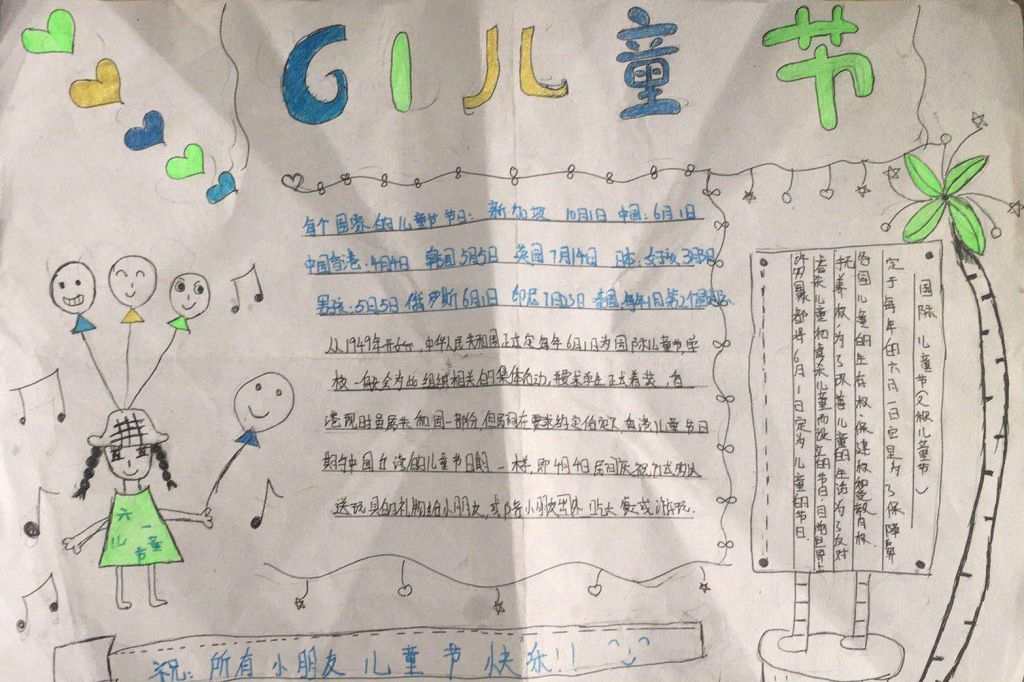 61儿童节
每个国家的儿童节节日：新加坡 10月1日 中国：6月1日
中国香港：4月4日 韩国5月5日 英国7月14日 日本：女孩3月3日
男孩：5月5日 俄罗斯6月1日 印尼7月23日 泰国每年1月第2个
从1949年开始，中华人民共和国正式定每年6月1日为国际儿童节，学
校一般会为此组织相关的集体活动，要求学生正式着装，台
港现时虽属
期与中国台湾的儿童节日期一样，即4月4日，民间庆祝方式
送玩具的礼物给小朋友，或陪小朋友出外吃大餐或游玩.
国际儿童节（又称儿童节）
定于每年的六月一日它是为了保障
各国儿童的生存权保健权和受教育权
抚养权，为了改善儿童的生活，为了反对
虐杀儿童和毒杀儿童而设立的节日.目前世界上
许多国家都将6月1日定为儿童的节日.
六一
儿童
节
祝：所有小朋友儿童节快乐!!